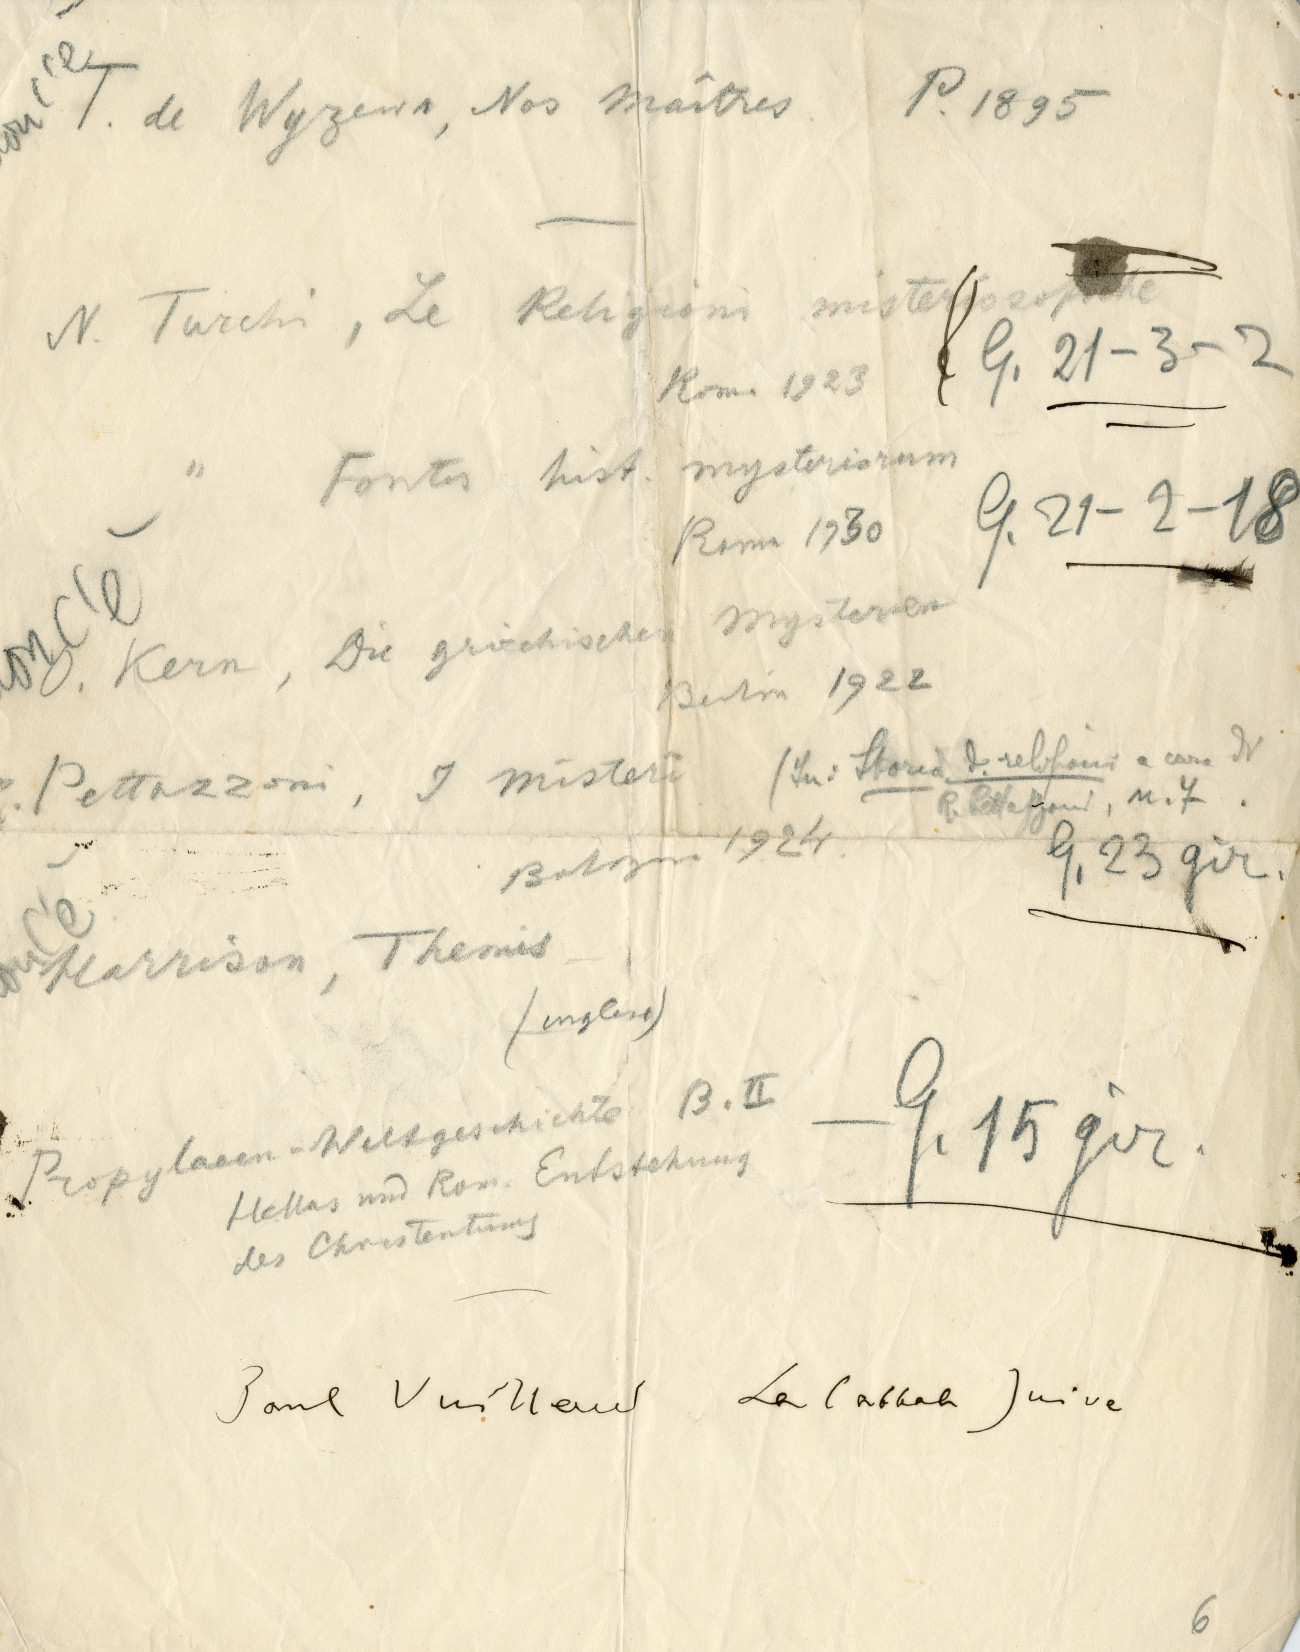 non c'è
T. de Wyzewa, Nos maîtres P. 1895
N. Turchi, Le Religioni misteriosofiche
Roma 1923 G. 21-3-2
" Fontes hist. mysteriorum
Roma 1930 G. 21-2-18
non c'è
O. Kern, Die griechischen Mysterien
Berlin 1922
R. Pettazzoni, I misteri (In: Storia d. religioni a cura di
R. Pettazzoni, n. 7.
Bologna 1924. G. 23 gir.
non c'è
Harrison, Themis
(inglese)
Propylaeen-Weltgeschichte B. II – G. 15 gir.
Hellas und Rom. Entstehung
des Christentums
Paul Vulliaud La Cabbale Juive
6